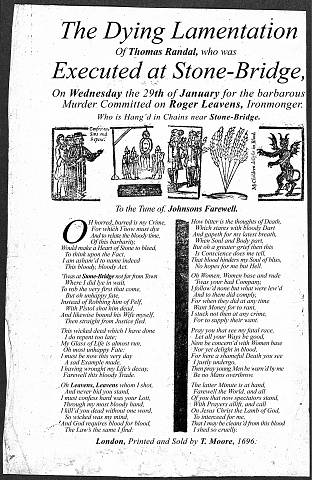 The Dying Lamentation
Of Thomas Randal, who was
Executed at Stone-Bridge,
On Wednesday the 29th of January for the barbarous
Murder Committed on Roger Leavens, Ironmonger.
Who is Hang'd in Chains near Stone-Bridge.
Confess yr
Sins and
Repent.
To the Tune of, Johnsons Farewell.
OH horred, horred is my Crime,
For which I now must dye
And to relate the bloody time,
Of this barbarity;
Would make a Heart of Stone to bleed,
To think upon the Fact,
I am asham'd to name indeed
This bloody, bloody Act.
'Twas at Stone-Bridge not far from Town
Where I did lye in wait,
To rob the very first that come,
But oh unhappy fate,
Instead of Robbing him of Pelf,
With Pistol shot him dead,
And likewise bound his Wife myself,
Then straight from Justice fled.
This wicked deed which I have done
I do repent too late;
My Glass of Life is almost run,
Oh most unhappy Fate.
I must be now this very day
A sad Example made,
I having wrought my Life's decay,
Farewell this bloody Trade.
Oh Leavens, Leavens whom I shot,
And never bid you stand,
I must confess hard was your Lott,
Through my most bloody hand,
I kill'd you dead without one word,
So wicked was my mind,
And God requires blood for blood,
The Law's the same I find:
How bitter is the thoughts of Death,
Which stares with bloody Dart
And gapeth for my latest breath,
When Soul and Body part,
But oh a greater grief then this
Is Conscience does me tell,
That blood hinders my Soul of bliss,
No hopes for me but Hell.
Oh Women, Women base and rude
'Twas your bad Company,
I follow'd none but what were lew'd
And to them did comply,
For when they did at any time
Want Money for to rant,
I stuck not then at any crime,
For to supply their want.
Pray you that see my fatal race,
Let all your Ways be good,
Now be concern'd with Women base
Nor yet delight in blood.
For here a shameful Death you see
I justly undergo,
Then pray young Men be warn'd by me
Be no Mans overthrow.
The latter Minute is at hand,
Farewell the World, and all
Of you that now spectators stand,
With Prayers alift, and call
On Jesus Christ the Lamb of God,
To interceed for me,
That I may be cleans'd from this blood
I shed so cruelly.
London, Printed and Sold by T. Moore, 1696: